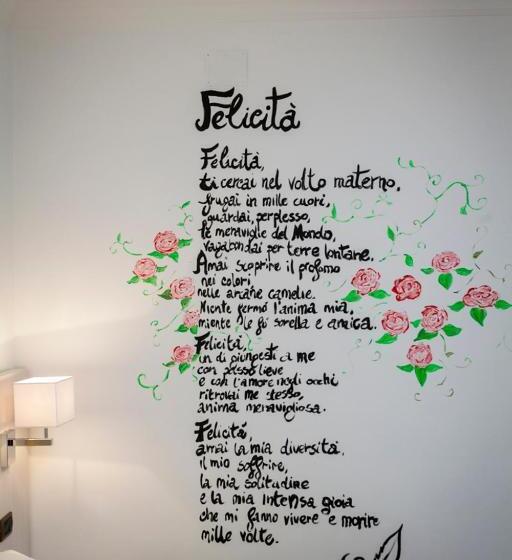 Felicità
Felicità,
ti cercai nel volto materno,
frugai in mille cuori,
guardai, perplesso,
le meraviglie del Mondo,
vagabondai per terre lontane.
Amai scoprire il profumo
nei colori
nelle arcane camelie.
Niente fermò l'anima mia,
niente le fu sorella e amica.
Felicità,
un dì giungesti a me
con passo lieve
e con l'amore negli occhi
ritrovai me stesso,
anima meravigliosa.
Felicità,
amai la mia diversità,
il mio soffrire,
la mia solitudine
e la mia intensa gioia
che mi fanno vivere e morire
mille volte.